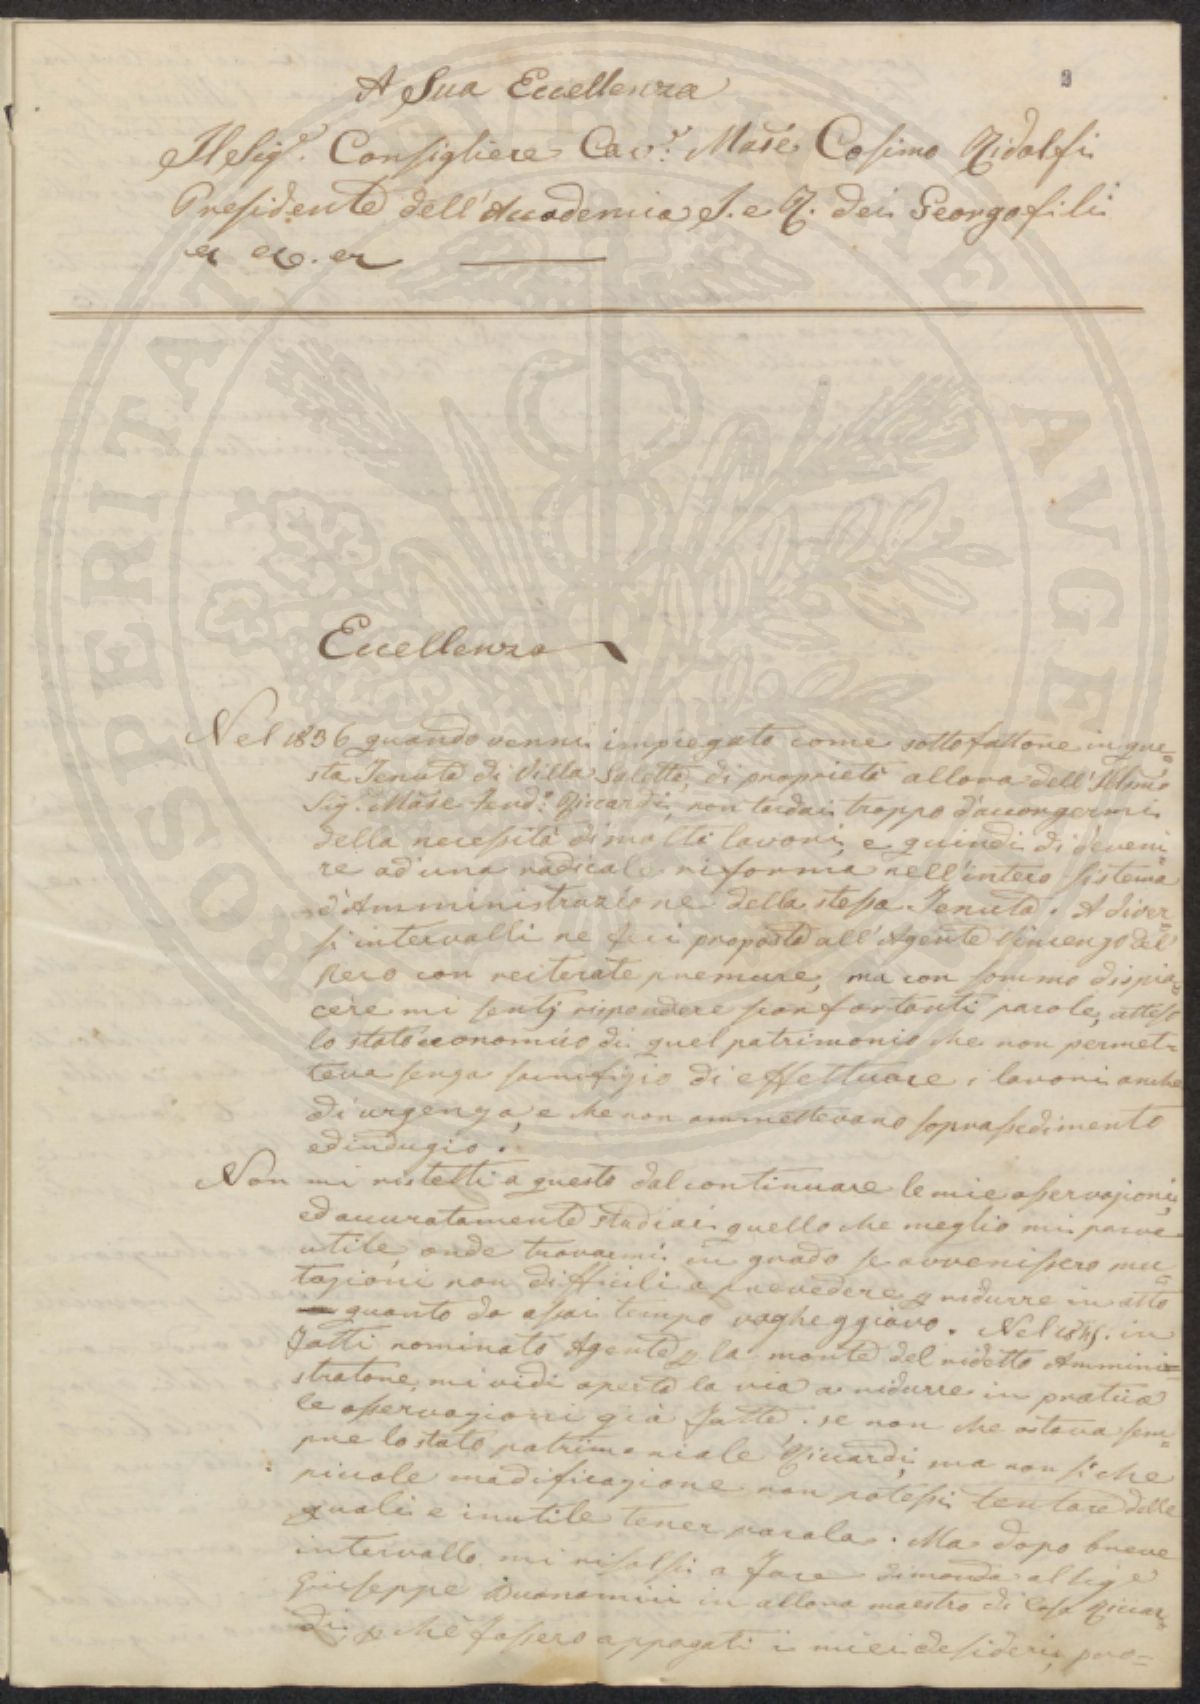 A Sua Eccellenza
Il Sig.r Consigliere Cav.r Mar.se Cosimo Ridolfi
Presidente dell'Accademia I. e R. dei Georgofili
ec ec. ec
Eccellenza
Nel 1836 quando venni impiegato come sotto fattore in que=
sta Tenuta di Villa Saletta, di proprietà allora dell'Illmo
Sig.r Mar.se Ferd.o Riccardi, non tardai troppo d'accorgermi
della necessità di molti lavori, e quindi di deveni
re ad una radicale riforma nell'intero sistema
d'Amministrazione della stessa Tenuta. A diver=
si intervalli ne feci proposta all'Agente Vincenzo del
Pero con reiterate premure, ma con sommo dispia=
cere mi sentj rispondere sconfortanti parole, atteso
lo stato economico di quel patrimonio che non permet=
teva senza sacrifizio di effettuare i lavori anche
di urgenza, e che non ammettevano soprassedimento
ed indugio.
Non mi ristetti a questo dal continuare le mie osservazioni,
ed accuratamente studiai quello che meglio mi parve
utile, onde trovarmi in grado se avvenissero mu=
tazioni non difficili a prevedere p ridurre in atto
quanto da assai tempo vagheggiavo. Nel 1845. in
fatti nominato Agente p la morte del ridetto Ammini=
stratore, mi vidi aperta la via a ridurre in pratica
le osservazioni già fatte. se non che ostava sem=
pre lo stato patrimoniale Riccardi, ma non sì che
piccole modificazione non potessi tentare delle
quali è inutile tener parola. Ma dopo breve
intervallo mi risolsi a fare dimanda al Sig.e
Giuseppe Buonamici in allora maestro di Casa Riccar=
di, p chè fossero appagati i miei desiderj, pro=
PROSPERITATI PVBLICAE AVGENDAE